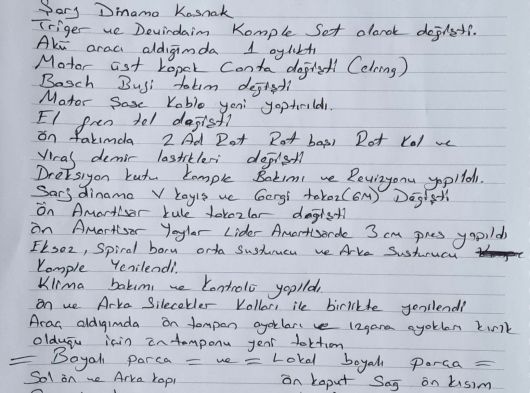 Şarj Dinamo Kasnak
Triger ve Devirdaim Komple Set olarak değişti.
Akü aracı aldığımda 1 aylıktı
Motor üst kapak Conta değişti (elring)
Bosch Buji takım değişti
Motor Şase Kablo yeni yaptırıldı.
El fren tel değişti
Ön takımda 2 Ad Rot Rot başı Rot Kol ve
Viraj demir lastikleri değişti
Direksiyon kutu komple Bakımı ve Revizyonu yapıldı.
Şarj dinamo V kayış ve Gergi takoz(GM) Değişti
Ön Amortisör kule takozlar değişti
Ön Amortisör Yaylar Lider Amortisörde 3 cm pres yapıldı
Eksoz, Spiral boru orta susturucu ve Arka Susturucu
Komple Yenilendi.
Klima bakımı ve Kontrolü yapıldı
Ön ve Arka Silecekler Kolları ile birlikte yenilendi
Araç aldığımda ön tampon ayakları ve ızgara ayakları kırık
olduğu için ön tamponu yeni taktım
= Boyalı parça = ve = Lokal boyalı parça =
Sol ön ve Arka kapı ön kaput Sağ ön kısım